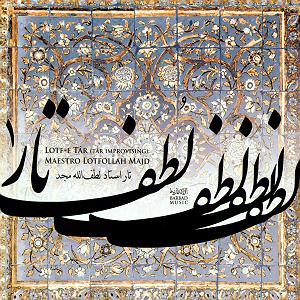 لطف تار
LOTF-E TĀR (TĀR IMPROVISING)
MAESTRO LOTFOLLAH MAJD
تار استاد لطف‌الله مجد
BARBAD
MUSIC